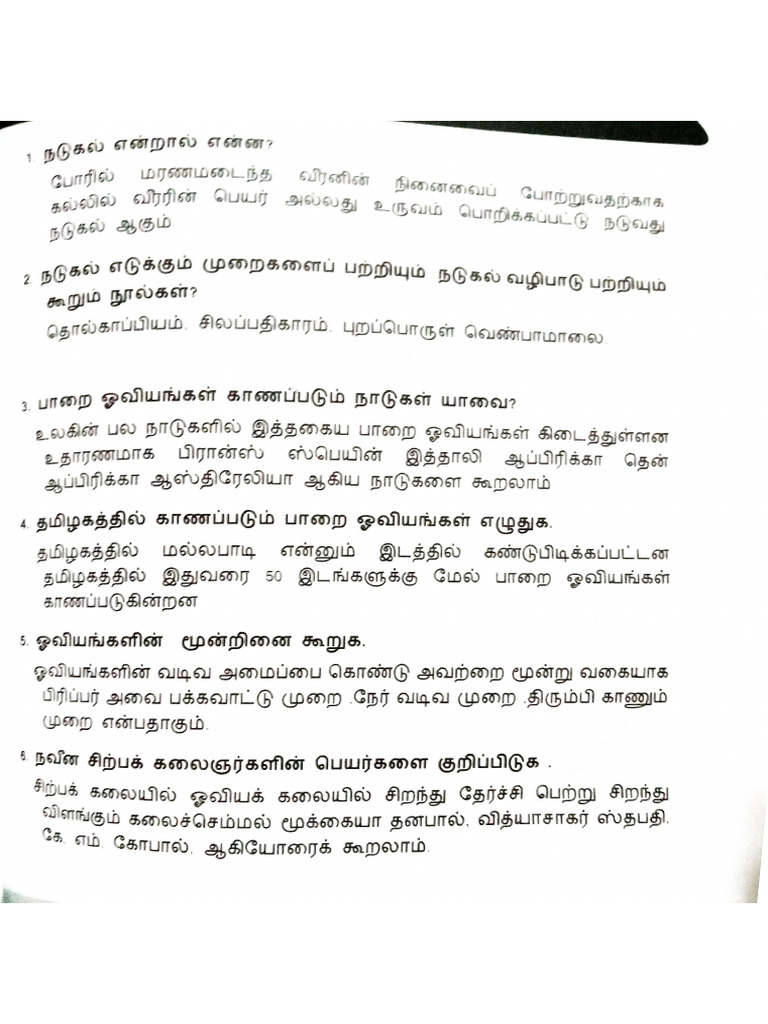 1. நடுகல் என்றால் என்ன?
போரில் மரணமடைந்த வீரனின் நினைவைப் போற்றுவதற்காக
கல்லில் வீரரின் பெயர் அல்லது உருவம் பொறிக்கப்பட்டு நடுவது
நடுகல் ஆகும்
2. நடுகல் எடுக்கும் முறைகளைப் பற்றியும் நடுகல் வழிபாடு பற்றியும்
கூறும் நூல்கள்?
தொல்காப்பியம். சிலப்பதிகாரம். புறப்பொருள் வெண்பாமாலை.
3. பாறை ஓவியங்கள் காணப்படும் நாடுகள் யாவை?
உலகின் பல நாடுகளில் இத்தகைய பாறை ஓவியங்கள் கிடைத்துள்ளன
உதாரணமாக பிரான்ஸ் ஸ்பெயின் இத்தாலி ஆப்பிரிக்கா தென்
ஆப்பிரிக்கா ஆஸ்திரேலியா ஆகிய நாடுகளை கூறலாம்
4. தமிழகத்தில் காணப்படும் பாறை ஓவியங்கள் எழுதுக.
தமிழகத்தில் மல்லபாடி என்னும் இடத்தில் கண்டுபிடிக்கப்பட்டன
தமிழகத்தில் இதுவரை 50 இடங்களுக்கு மேல் பாறை ஓவியங்கள்
காணப்படுகின்றன
5. ஓவியங்களின் மூன்றினை கூறுக.
ஓவியங்களின் வடிவ அமைப்பை கொண்டு அவற்றை மூன்று வகையாக
பிரிப்பர் அவை பக்கவாட்டு முறை .நேர் வடிவ முறை .திரும்பி காணும்
முறை என்பதாகும்.
6. நவீன சிற்பக் கலைஞர்களின் பெயர்களை குறிப்பிடுக .
சிற்பக் கலையில் ஓவியக் கலையில் சிறந்து தேர்ச்சி பெற்று சிறந்து
விளங்கும் கலைச்செம்மல் மூக்கையா தனபால், வித்யாசாகர் ஸ்தபதி,
கே. எம். கோபால், ஆகியோரைக் கூறலாம்.